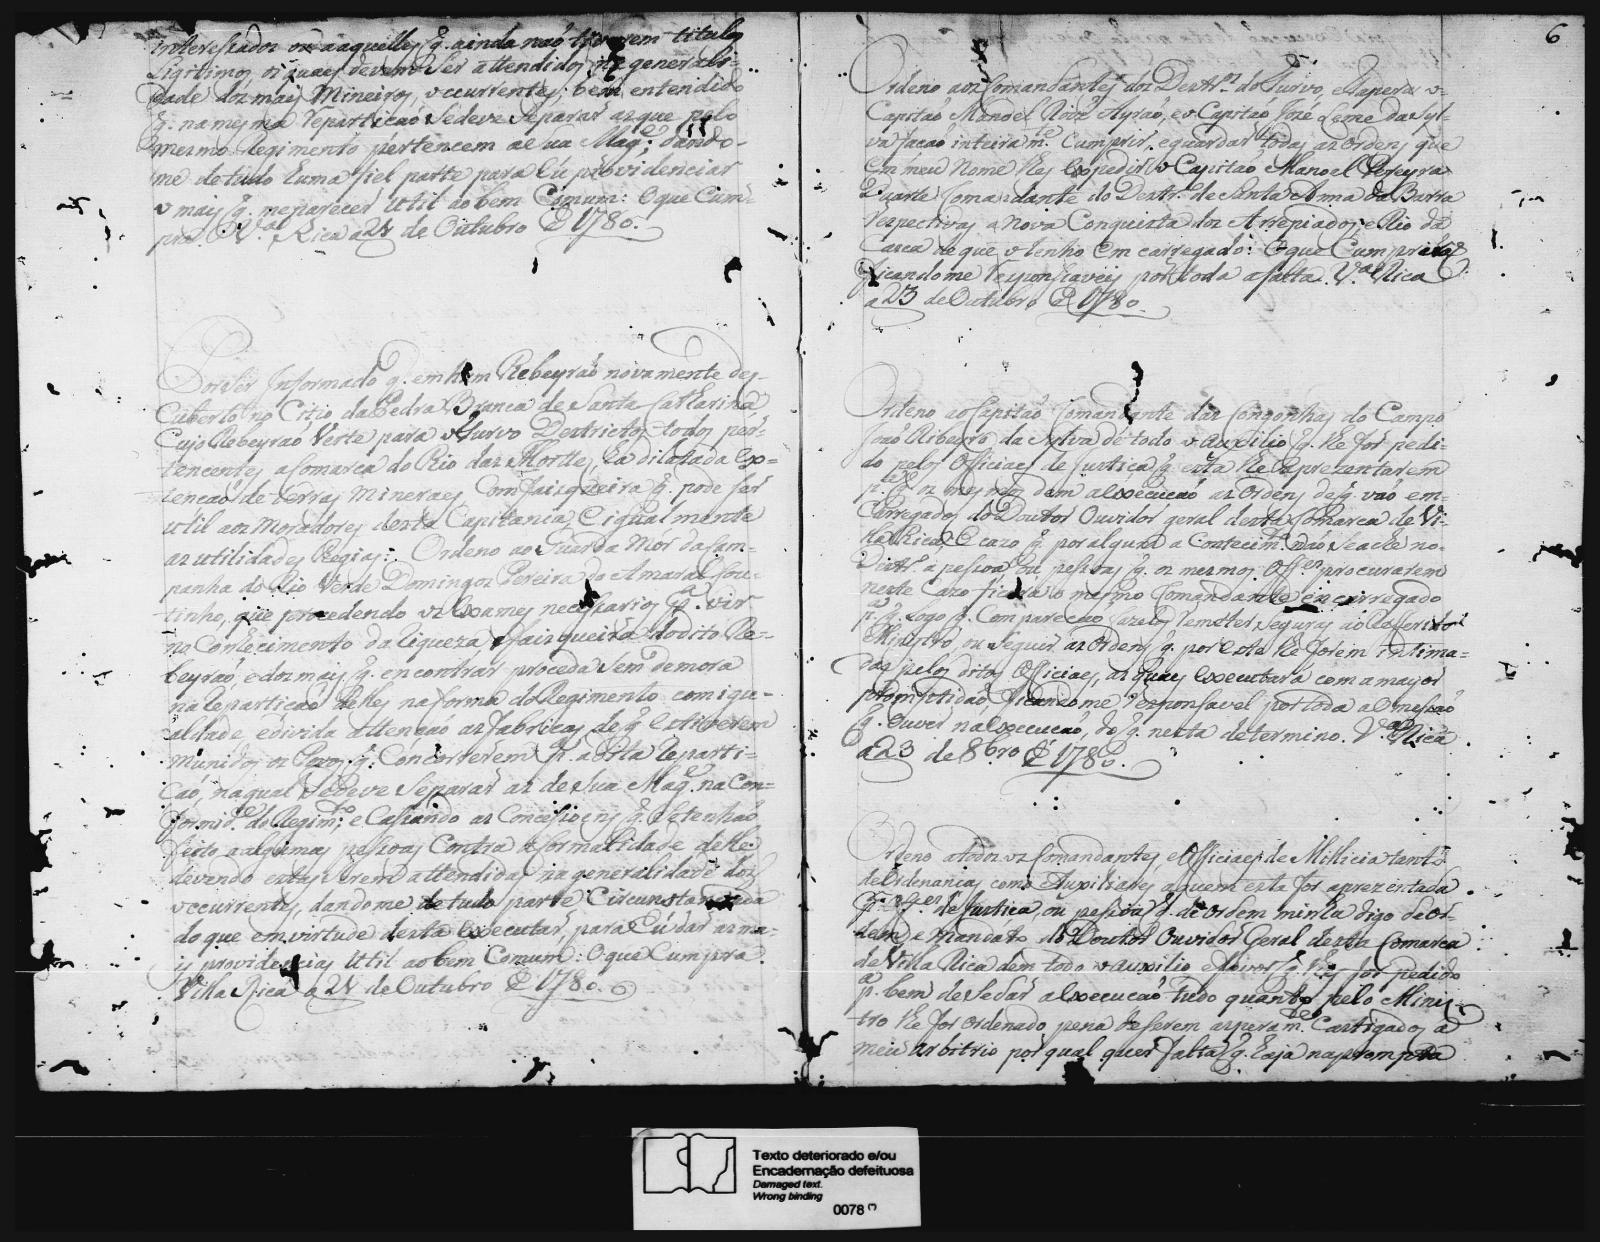 interessados ou aaquelles q̃. ainda naõ tiverem titulos
Ligitimos, os quaes devem Ser attendidos na generali-
dade dos mais Mineiros, occurrentes; bem entendido
q̃. na mesma repartiçaõ Sedeve Separar as que pelo
mesmo Regimento pertencem a Sua Magᵉ. dando-
me detudo huma fiel parte para Eú providenciar
o mais q̃. meparecer util ao bem Comum: Oque Cum-
pra. Vᵃ. Rica a 24 de Outubro de 1780.
Por Ser Informado q̃. em hum Rebeyraõ novamente des-
Cuberto no Citio da Pedra Branca de Santa Catharina
Cujo Rebeyraõ Verte para o Turvo Destrictos todos per-
tencentes aComarca do Rio das Mortes, ha dilatada ex-
tençaõ de terras Mineraes Com faisqueira q̃. pode ser
util aos Moradores desta Capitania, E igual mente
as utilidades Regias: Ordeno ao Guarda Mor da Cam-
panha do Rio Verde Domingos Pereira do Amaral Cou-
tinho, que procedendo os Exames necessarios pᵃ. vir
no Conhecimento da riqueza e faisqueira do dito Re-
beyraõ, e dos mais q̃. encontrar proceda Sem demora
na Repartiçaõ delles na forma do Regimento com igu-
aldade, edivida attençaõ as fabricas de q̃. Estiverem
munidos os Povos q̃. Concorrerem pᵃ. a dita reparti-
çaõ, na qual Sedeve Separar as de Sua Magᵉ. na Con-
formidᵉ. do Regimᵗᵒ; e Cassando as Concessoens q̃. Setenhaõ
feito aalgumas pessoas Contra a formalidade delle
devendo estas serem attendidas na generalidade dos
occurrentes, dandome detudo parte Circunstanciada
do que em virtude desta executar, para Eú dar as ma-
is providencias Util ao bem Comum: O que Cumpra.
Villa Rica a 24 de Outubro de 1780.
6
Ordeno aos Comandantes dos Destrᵒˢ. do Turvo, e Itapera o
Capitaõ Manoel Roiz Ayraõ, e o Capitaõ José Leme da Syl-
va facaõ inteiramᵉ. Cumprir, eguardar todas as Ordens que
em meu Nome lhes expedir o Capitaõ Manoel Pereyra
Duarte Comandante do Destrᵒ. de Santa Anna da Barra
respectivas a nova Conquista dos Arrepiados, e Rio da
Casca de que o tenho Em carregado: O que Cumpriraõ
ficandome responsaveis por toda a falta. Vᵃ Rica
a 23 de Outubro de 1780.
Ordeno ao Capitaõ Comandante das Congonhas do Campo
Joaõ Ribeyro da Sylva dé todo o auxilio q̃. lhe for pedi-
do pelos Officiaes de Justiça q̃. esta lhe aprezentarem
pᵃ. q̃. os mesmos dem aExecuçaõ as Ordens de q̃. vaõ em-
Carregados do Doutor Ouvidor geral desta Comarca de Vi-
lla Rica, E cazo q̃. por algum a Contecimᵗᵒ. naõ Seache no
Distrᵒ a pessoa ou pessoas q̃. os mesmos Offᵉˢ procurarem
neste Cazo ficará o mesmo Comandante encarregado
pᵃ. q̃. Logo q̃. Compareçaõ fazelos remeter seguros ao Referido
Ministro, ou Seguir as Ordens q̃. por esta lhe forem intima-
das pelos ditos Officiaes, as quaes executará com a mayor
promptidaõ ficandome responsavel por toda a omissaõ
q̃. houver na Execuçaõ, do q̃. nesta determino. Vᵃ Rica
a 23 de 8bro de 1780.
Ordeno atodos os Comandantes e Officiaes de Millicia tanto
de Ordenanças como Auxiliares, a quem esta for aprezentada
pʳ. Offᵉˢ. de Justiça, ou pessoa q̃. de Ordem minha digo de Or-
dem, e Mandato do Doutor Ouvidor Geral desta Comarca
de Villa Rica dem todo o auxilio e favor q̃. lhes for pedido
pᵃ. bem de Sedar aExecuçaõ tudo quanto pelo Minis-
tro lhe for ordenado pena de serem asperamᵗᵉ. Castigados a
meu arbitrio por qual quer falta q̃. haja na prompta
Texto deteriorado e/ou
Encadernação defeituosa
Damaged text.
Wrong binding
0078